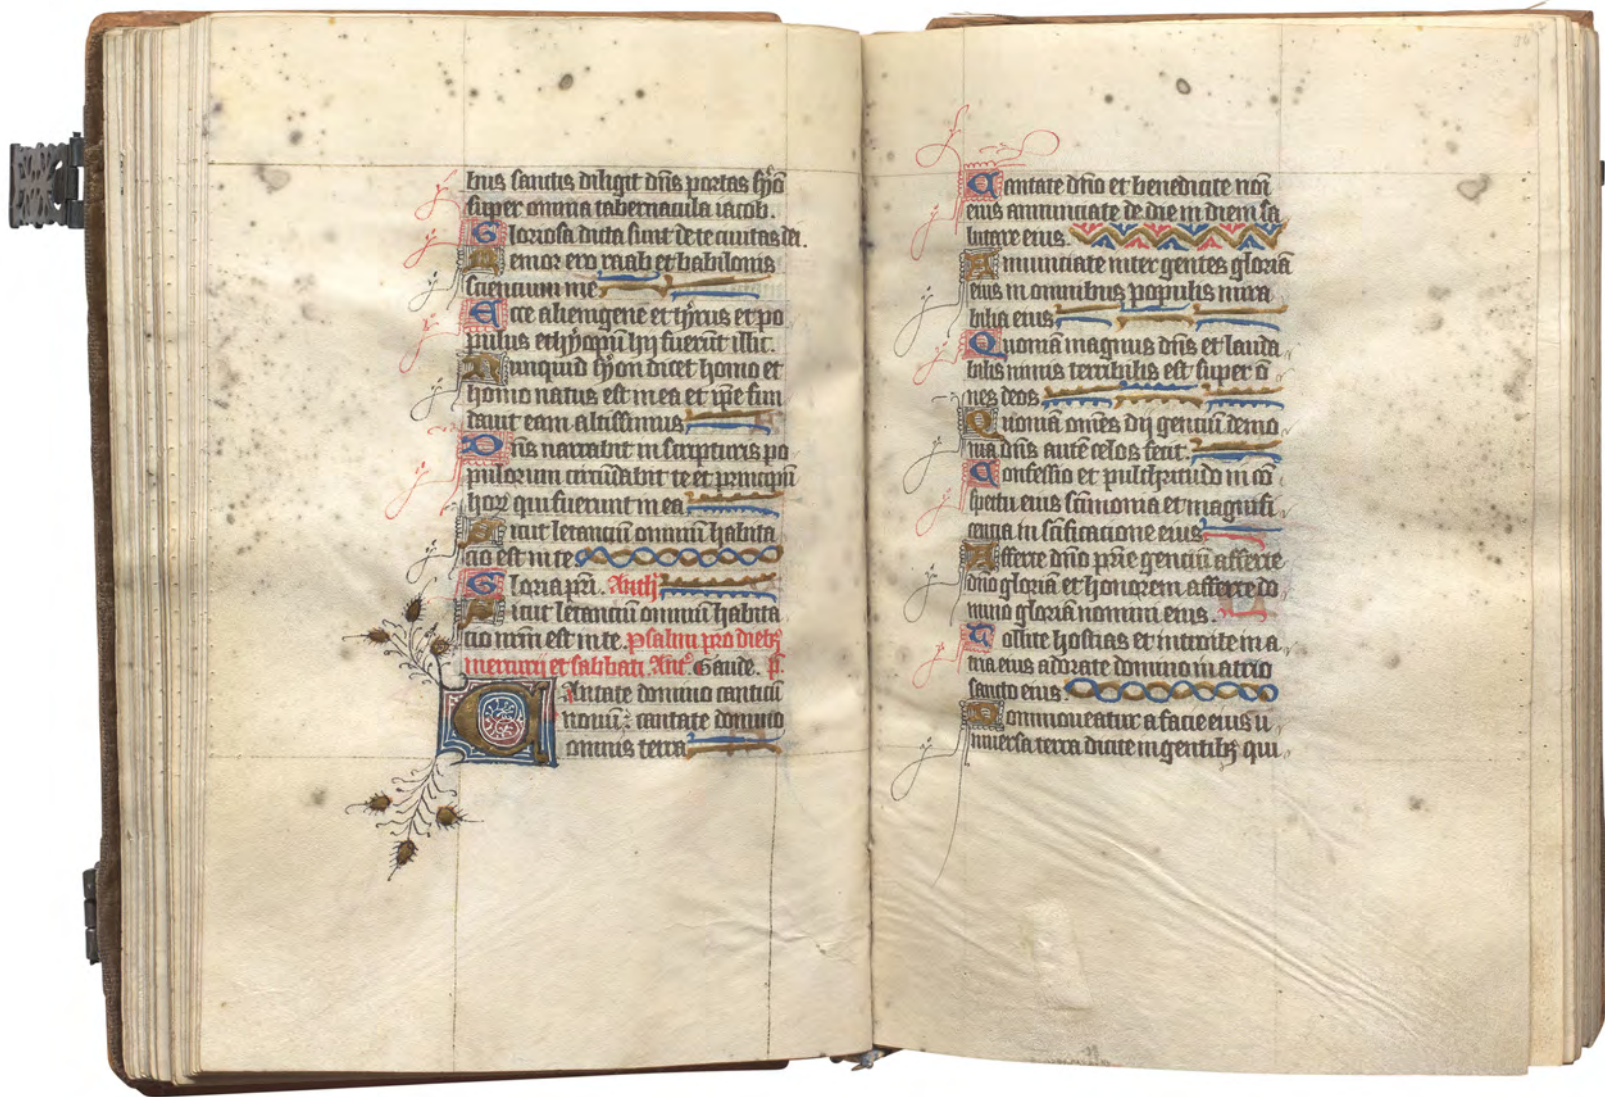 bus sanctis diligit dñs portas syõ
super omnia tabernacula iacob.
Gloriosa dicta sunt de te ciuitas dei.
Memor ero raab et babilonis
sciencium me
Ecce alienigene et tyrus et po
pulus ethyopũ hij fuerũt illic.
Nunquid syon dicet homo et
homo natus est in ea et ip̃e fun
dauit eam altissimus
Dñs narrabit in scripturis po
pulorum circũdabit te et principũ
hoꝝ qui fuerunt in ea
Sicut letanciũ omniũ habita
cio est in te
Gloria pr̃i. Anth
Sicut letanciũ omniũ habita
cio nr̃m est in te. psalmi pro diebꝫ
mercurij et sabbati Ant᷒. Gaude. p̃.
Cantate domino canticũ
nouũ: cantate domino
omnis terra
36
Cantate dño et benedicite noĩ
eius annunciate de die in diem sa
lutare eius.
Annunciate inter gentes gloriã
eius in omnibus populis mira
bilia eius
Quoniã magnus dñs et lauda
bilis nimis terribilis est super õ
nes deos
Quoniã omẽs dij genciũ demo
nia dñs autẽ celos fecit.
Confessio et pulchritudo in cõ
spectu eius scĩmonia et magnifi
cencia in scĩficacione eius
Afferte dño pr̃ie genciũ afferte
dño gloriã et honorem afferte do
mino gloriã nomini eius.
Tollite hostias et introite in a
tria eius adorate dominoin atrio
sancto eius
Commoueatur a facie eius u
niuersa terra dicite in gentibꝫ qui